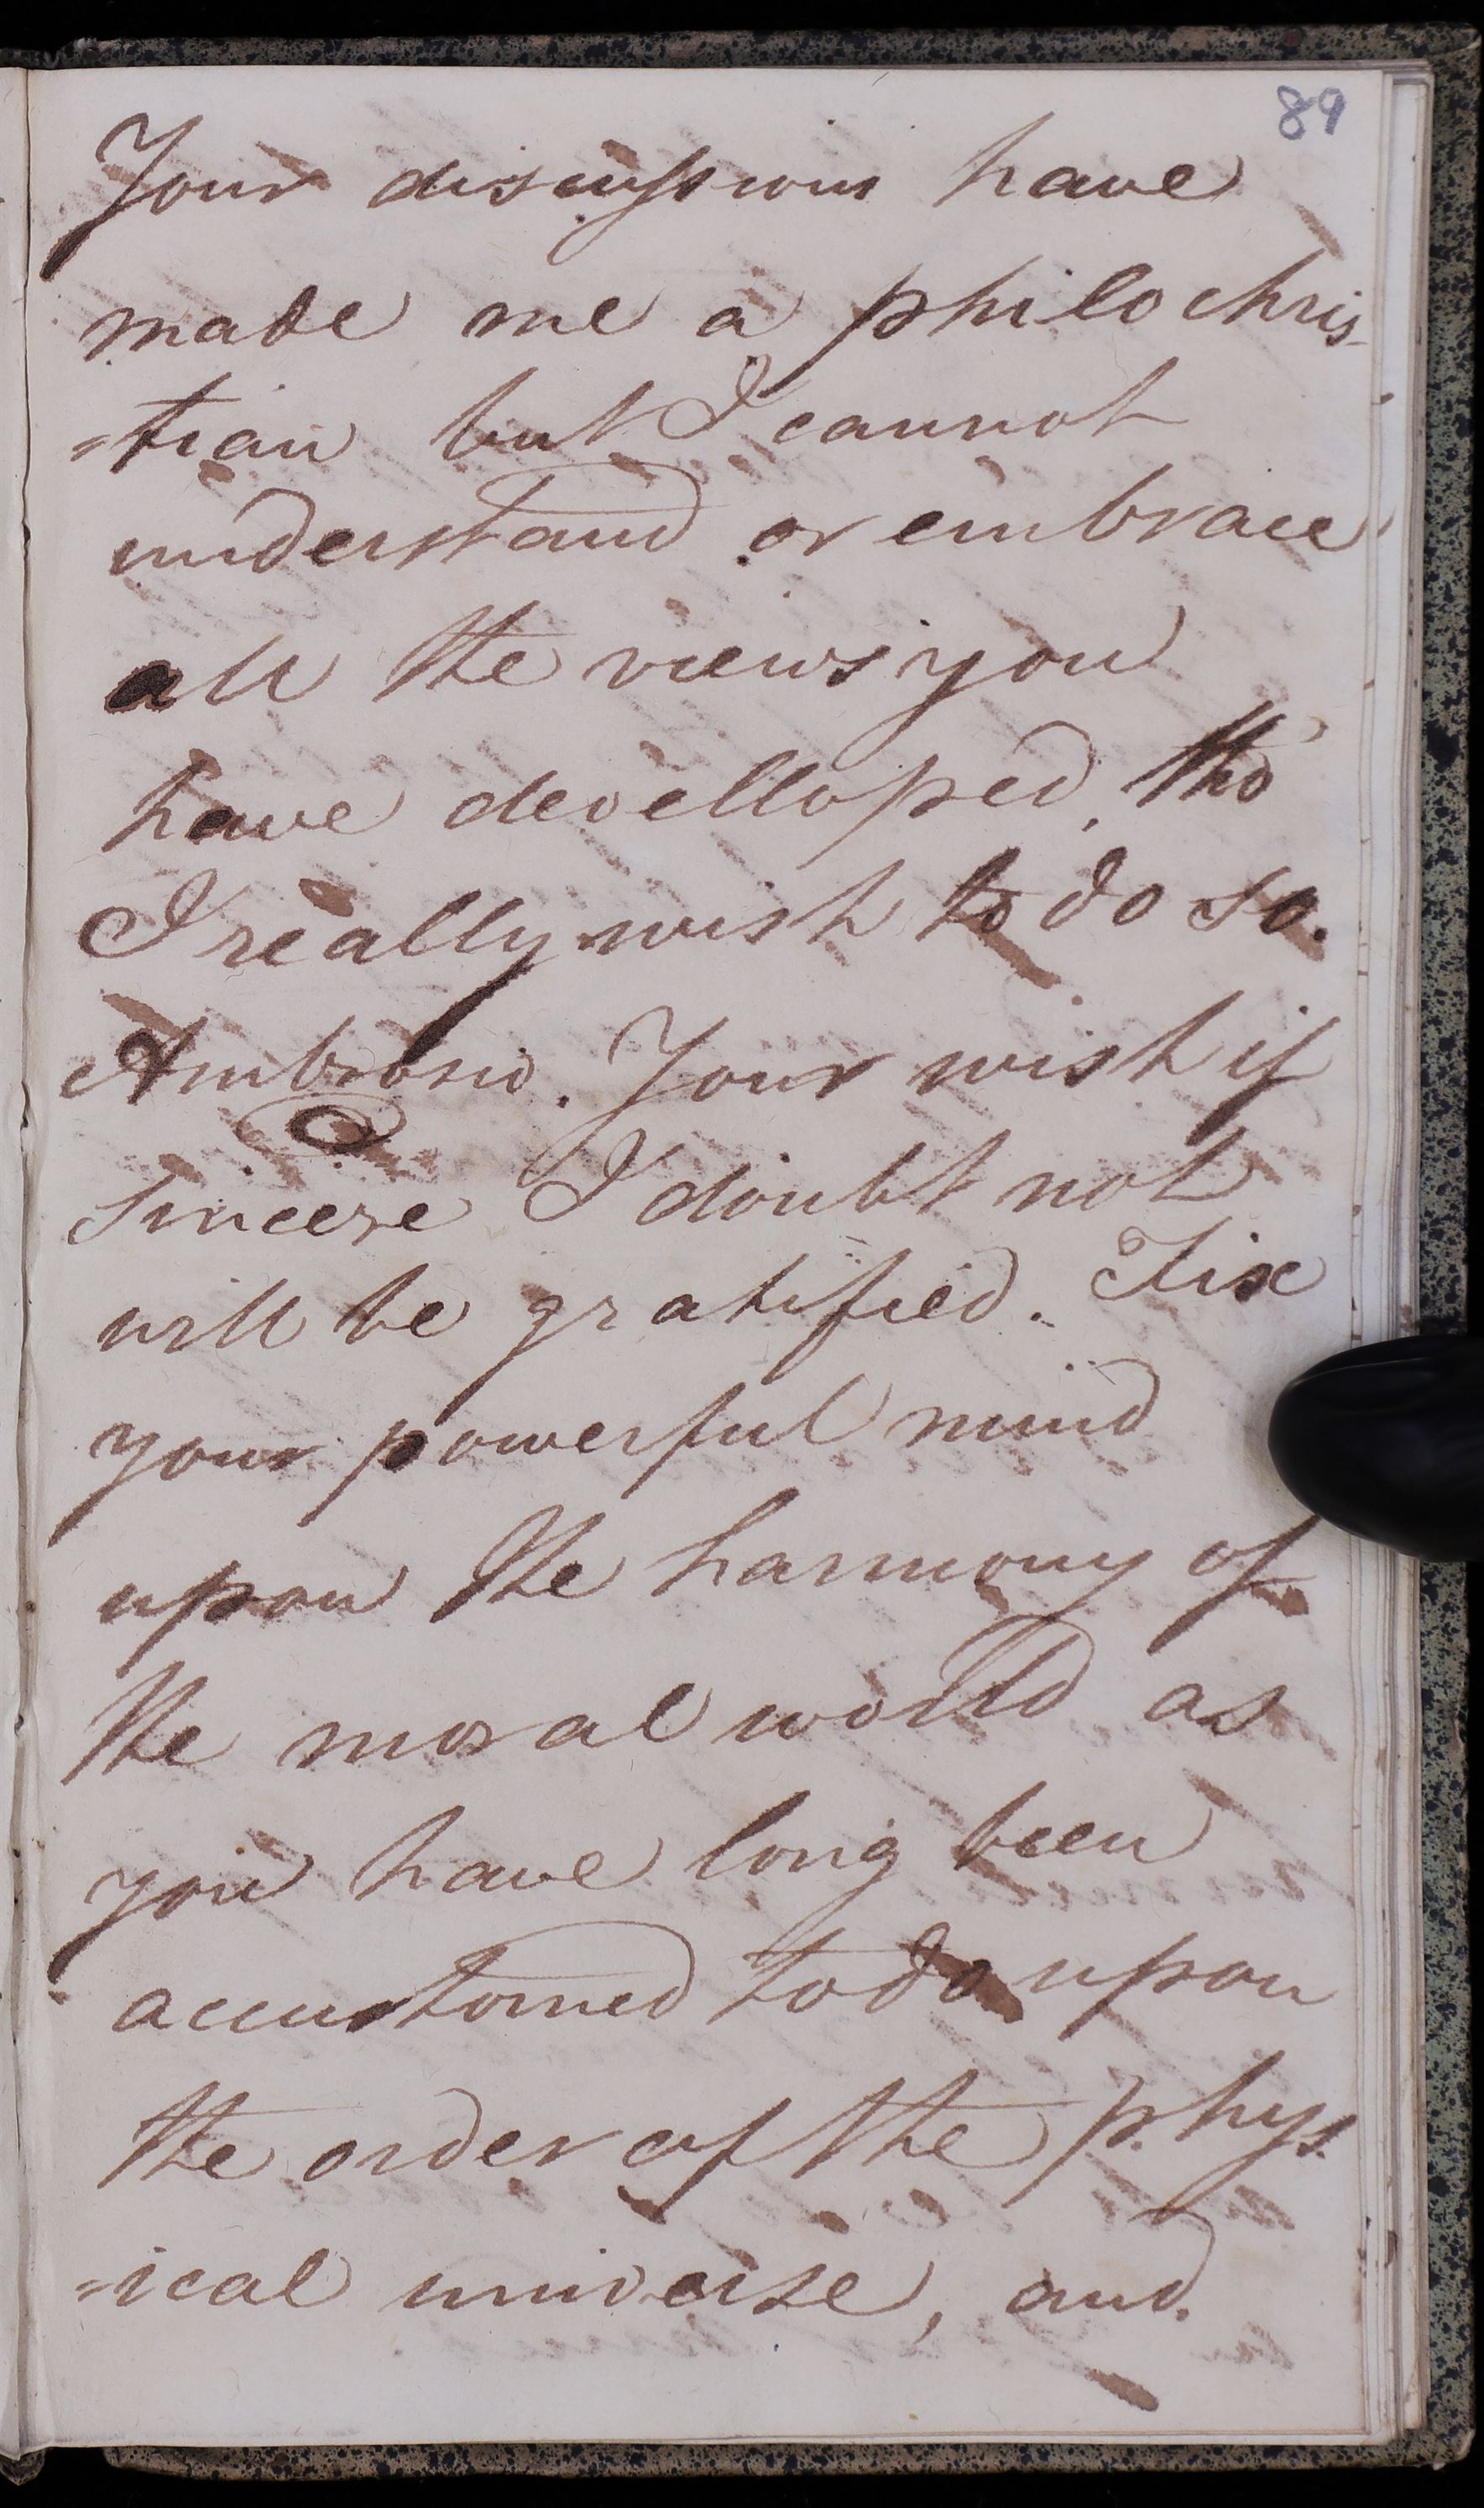 89
Your discussions have
made me a philo chris-
=tian but I cannot
understand or embrace
all the views you
have developped, tho'
I really wish to do so.
Ambrosio. Your wish if
sincere I doubt not
will be gratified. Fix
your powerful mind
upon the harmony of
the moral world as
you have long been
accustomed to do upon
the order of the phys
=ical universe, and